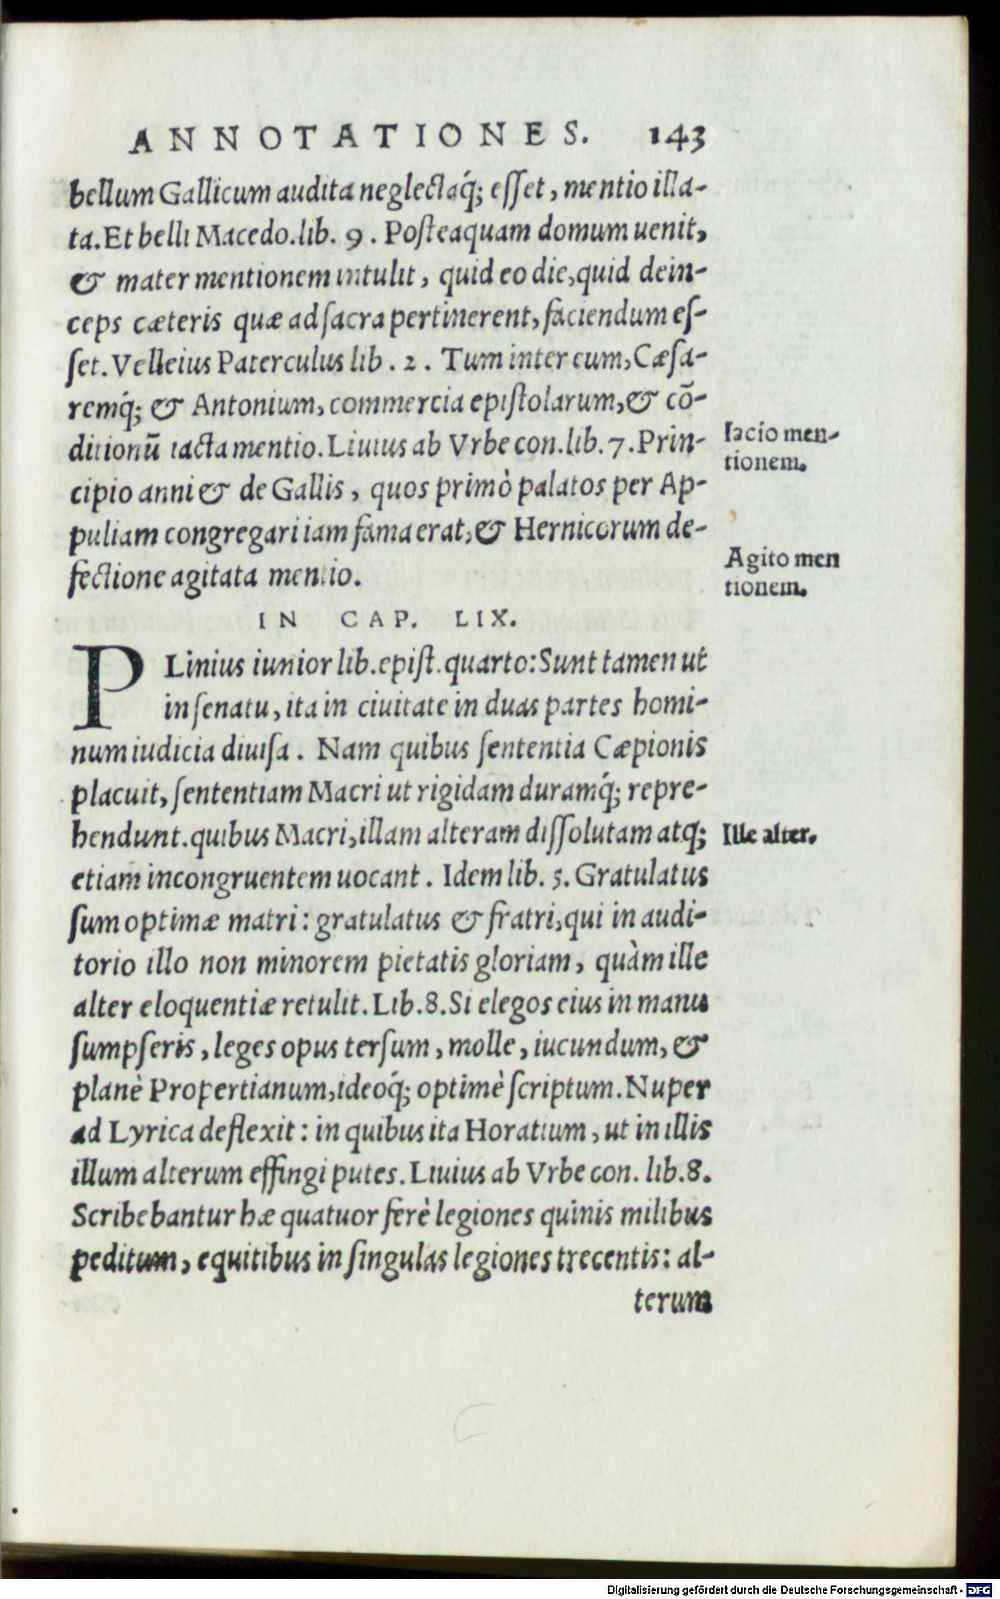 ANNOTATIONES. 143
bellum Gallicum audita neglectaq́; eſſet, mentio illa-
ta. Et belli Macedo. lib. 9. Poſteaquam domum uenit,
& mater mentionem intulit, quid eo die, quid dein-
ceps cæteris quæ ad ſacra pertinerent, faciendum eſ-
ſet. Velleius Paterculus lib. 2. Tum inter eum, Cæſa-
remq́; & Antonium, commercia epiſtolarum, & cō-
ditionū iacta mentio. Liuius ab Vrbe con. lib. 7. Prin-
Iacio men-
tionem.
cipio anni & de Gallis, quos primò palatos per Ap-
puliam congregari iam fama erat, & Hernicorum de-
Agito men
tionem.
fectione agitata mentio.
IN CAP. LIX.
PLinius iunior lib. epiſt. quarto: Sunt tamen ut
in ſenatu, ita in ciuitate in duas partes homi-
num iudicia diuiſa. Nam quibus ſententia Cæpionis
placuit, ſententiam Macri ut rigidam duramq́; repre-
hendunt. quibus Macri, illam alteram diſſolutam atq;
Ille alter.
etiam incongruentem uocant. Idem lib. 5. Gratulatus
ſum optimæ matri: gratulatus & fratri, qui in audi-
torio illo non minorem pietatis gloriam, quàm ille
alter eloquentiæ retulit. Lib. 8. Si elegos eius in manu
ſumpſeris, leges opus terſum, molle, iucundum, &
planè Propertianum, ideoq́; optimè ſcriptum. Nuper
ad Lyrica deflexit: in quibus ita Horatium, ut in illis
illum alterum effingi putes. Liuius ab Vrbe con. lib. 8.
Scribebantur hæ quatuor ferè legiones quinis milibus
peditum, equitibus in ſingulas legiones trecentis: al-
terum
Digitalisierung gefördert durch die Deutsche Forschungsgemeinschaft - DFG